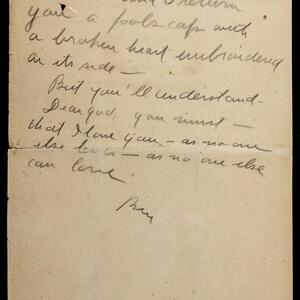 return
you a fools cap with
a broken heart embroidered
on its side —
But you'll understand -
Dear god, you must —
that I love you - as no one
else loves - as no one else
can love